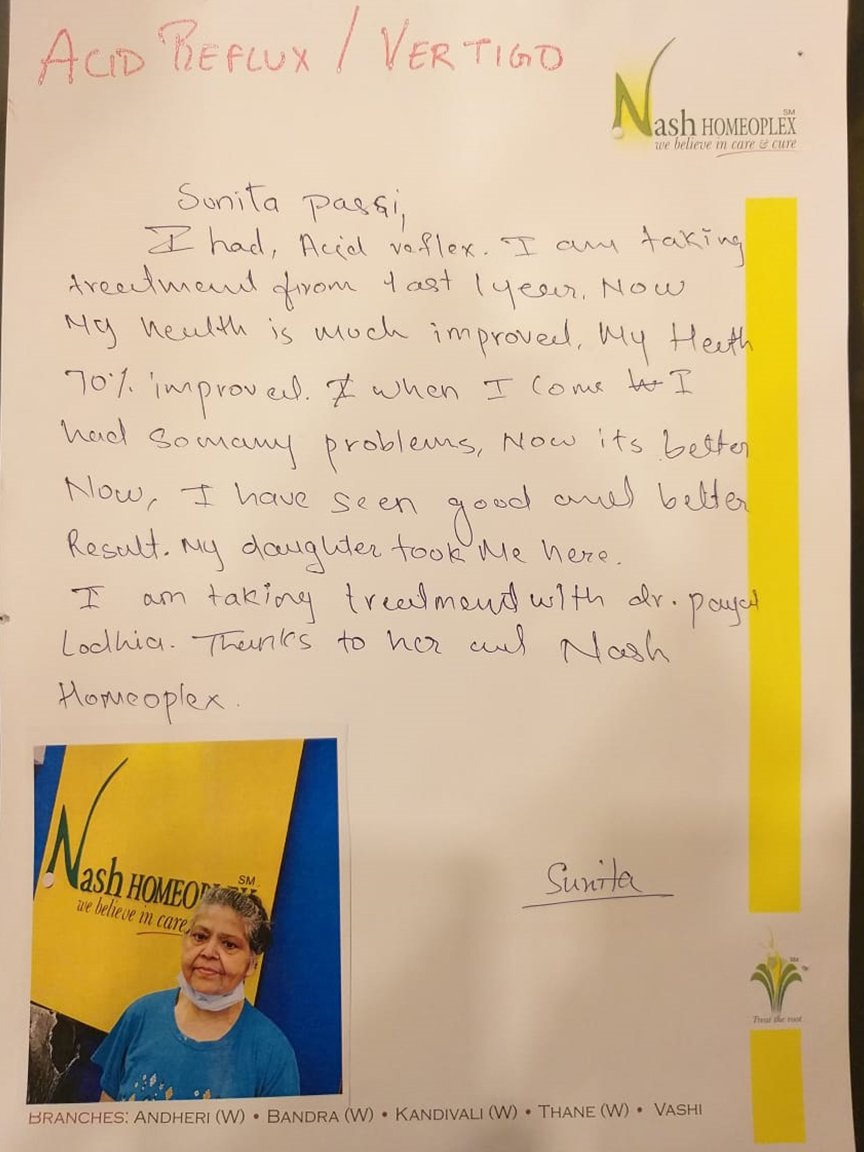 ACID REFLUX / VERTIGO
Nash HOMEOPLEX SM
we believe in care & cure
Sunita passi,
I had, Acid reflex. I am taking
treatment from last 1 year. Now
My health is much improved. My Heath
70% improved. I when I come I
had somany problems, Now its better
Now, I have seen good and better
Result. My daughter took Me here.
I am taking treatment with dr. payal
Lodhia. Thanks to her and Nash
Homeoplex.
Nash HOMEOPLEX SM
we believe in care
Sunita
Treat the root
BRANCHES: ANDHERI (W) • BANDRA (W) • KANDIVALI (W) • THANE (W) • VASHI